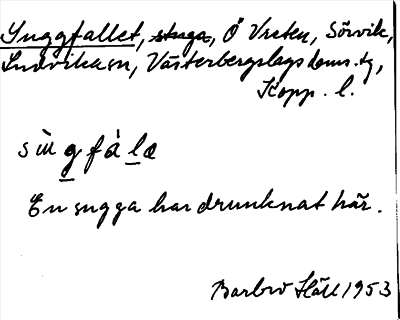 Suggfallet, stuga, Ö Vreten, Sörvik,
Ludvika sn, Västerbergslags doms.tg,
Kopp. l.
sùg fà la
En sugga har drunknat här.
Barbro Häll 1953